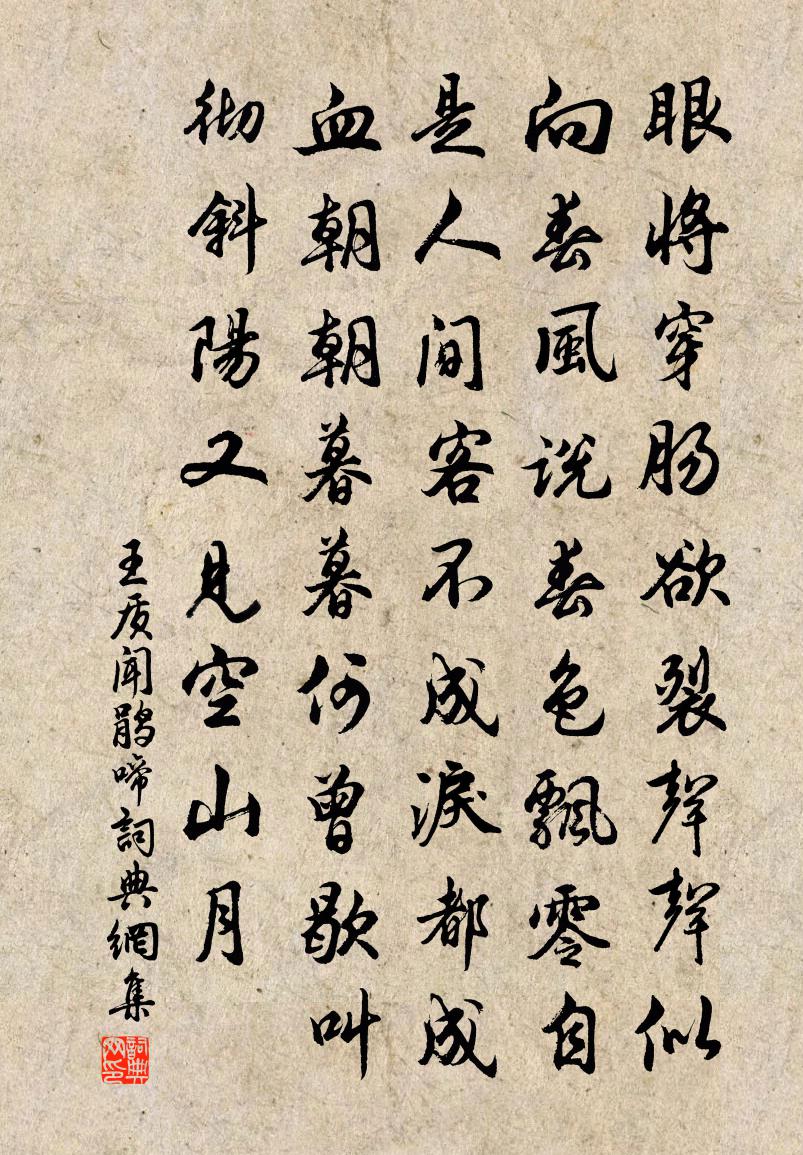 眼將穿肠欲裂聲聲似
向春風説春色飄零自
是人間客不成淚都成
血朝朝暮暮何曾歇叫
彻斜陽又見空山月
王质闻鹃啼詞典網集
詞典
网印